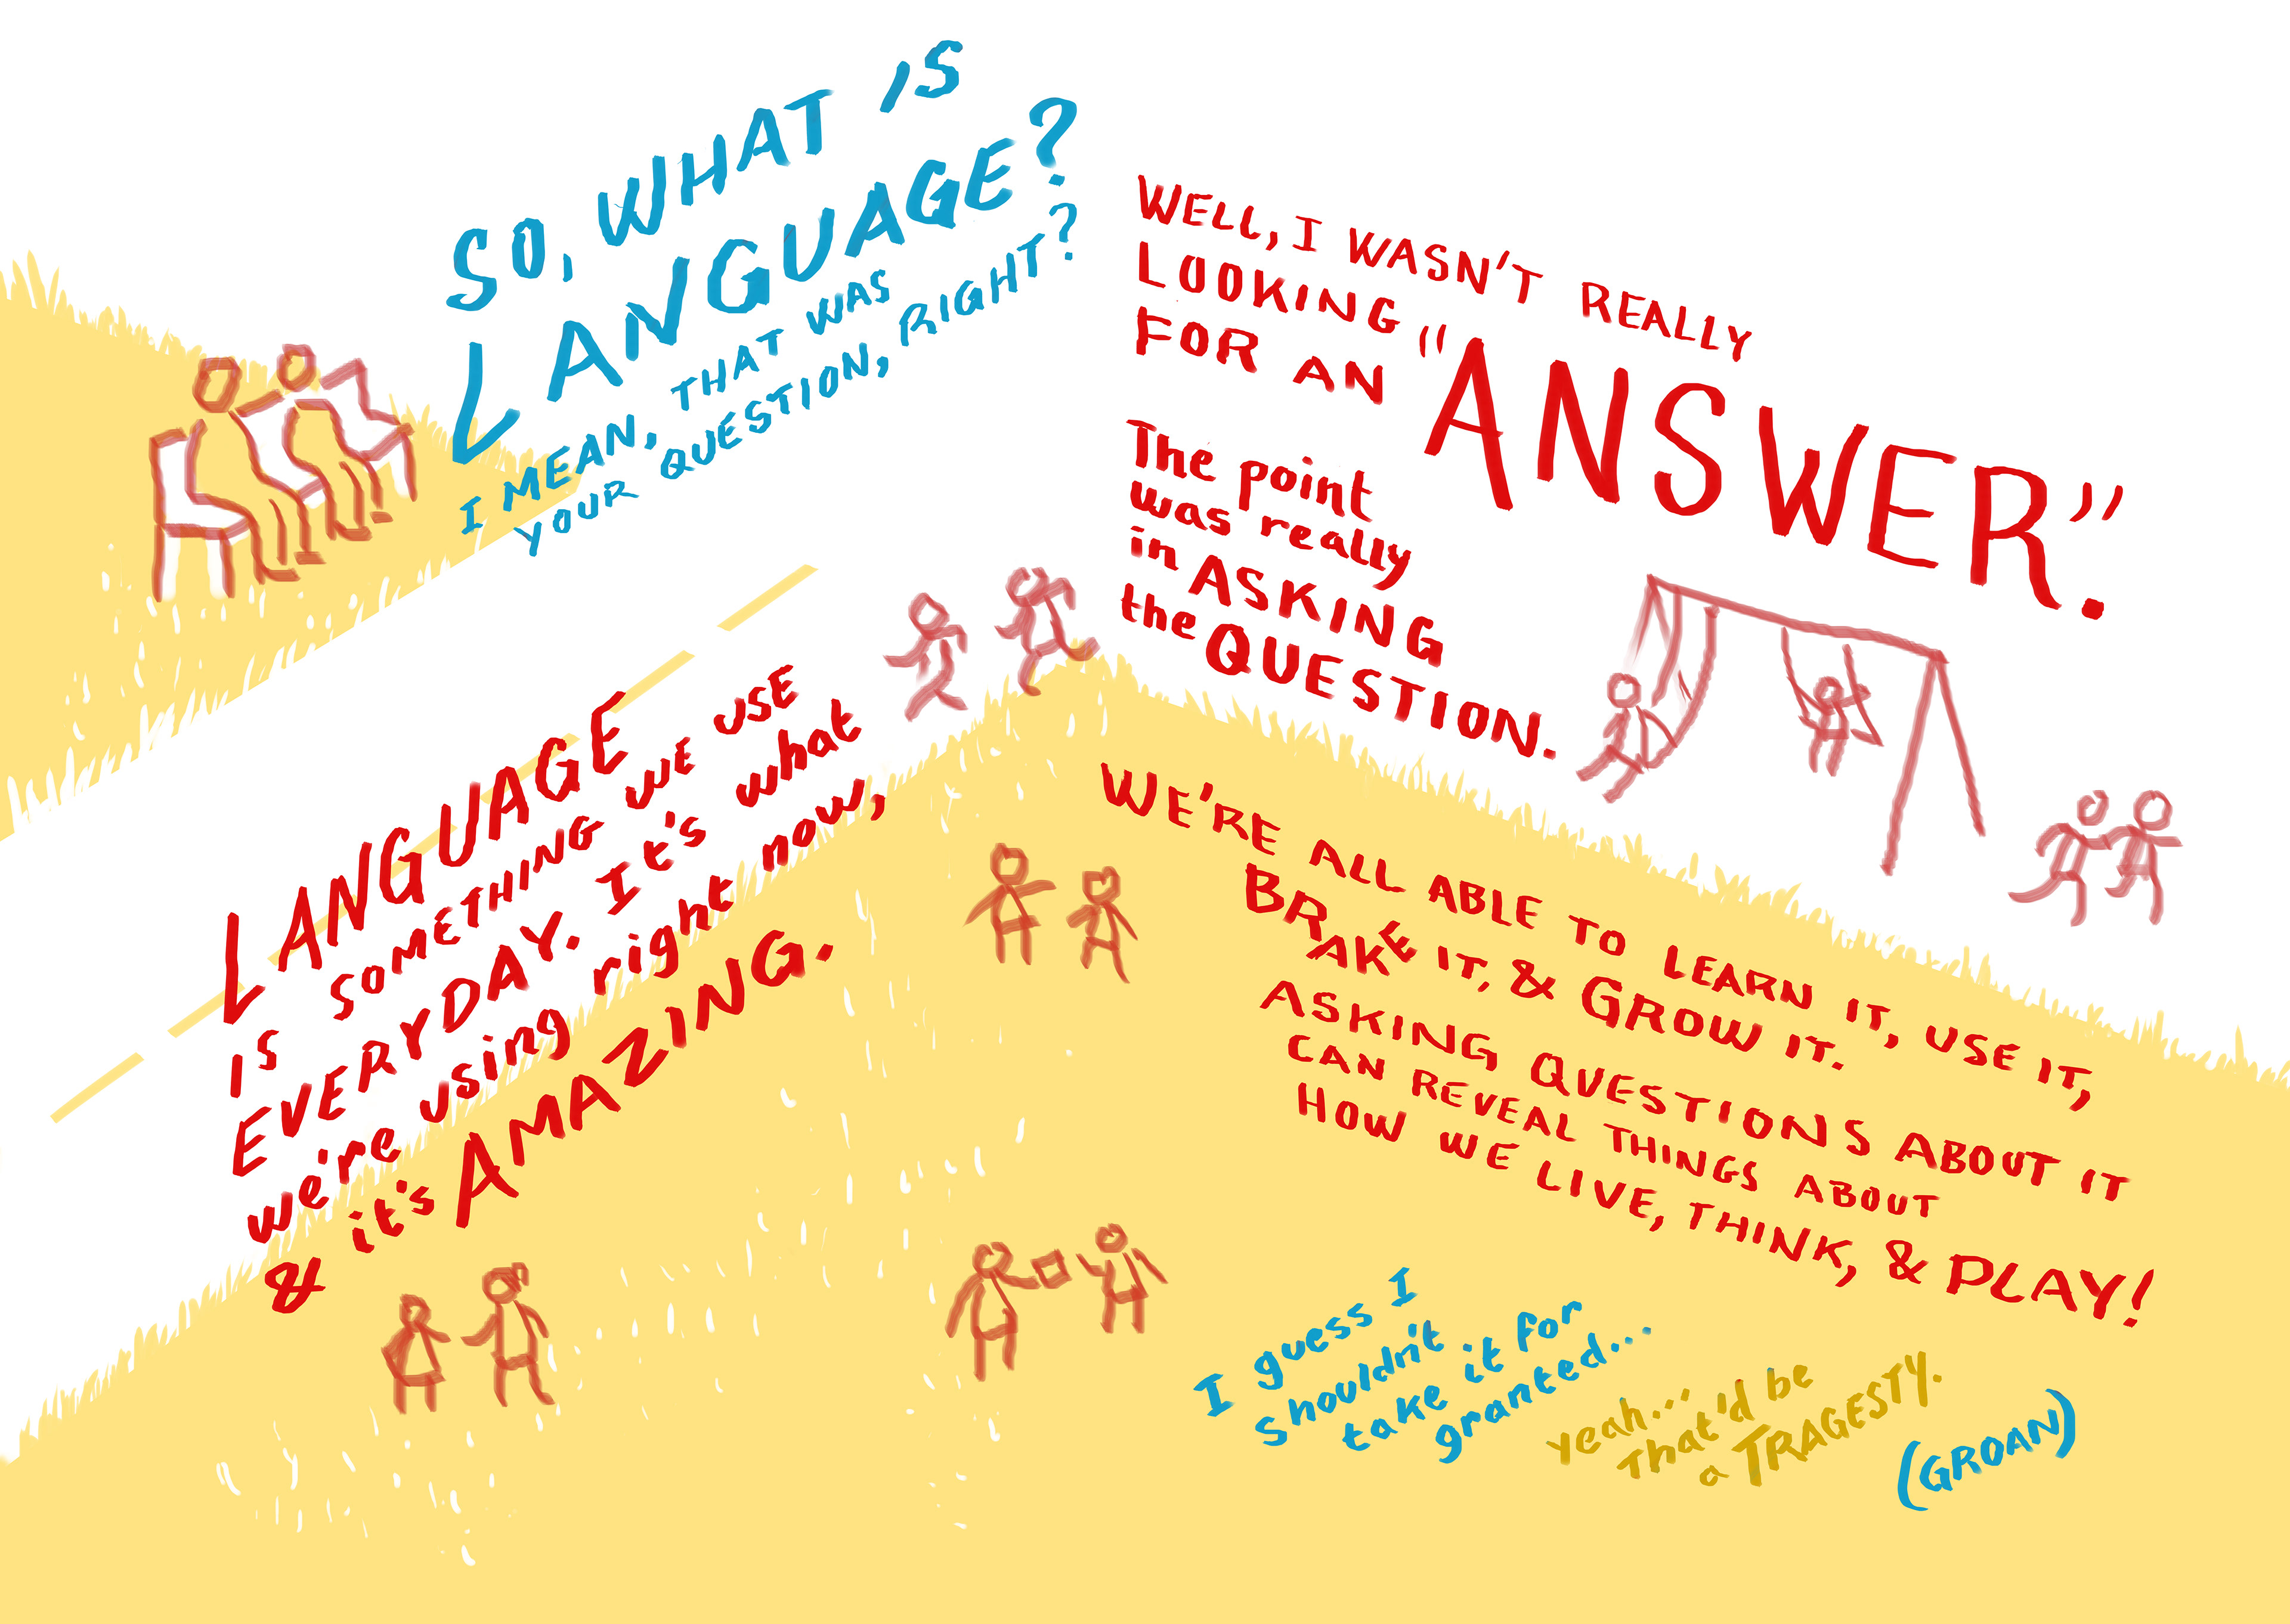 SO, WHAT IS
LANGUAGE?
I MEAN, THAT WAS
YOUR QUESTION, RIGHT?
WELL, I WASN'T REALLY
LOOKING
FOR AN "ANSWER."
The point
was really
in ASKING
the QUESTION.
LANGUAGE
IS SOMETHING WE USE
EVERYDAY. It's what
we're using right now,
& it's AMAZING.
WE'RE ALL ABLE TO LEARN IT, USE IT,
BRAKE IT, & GROW IT.
ASKING QUESTIONS ABOUT IT
CAN REVEAL THINGS ABOUT
HOW WE LIVE, THINK, & PLAY!
I guess I
shouldn't
take it for
granted...
Yeah... 
That'd be
a TRAGESTY.
(GROAN)